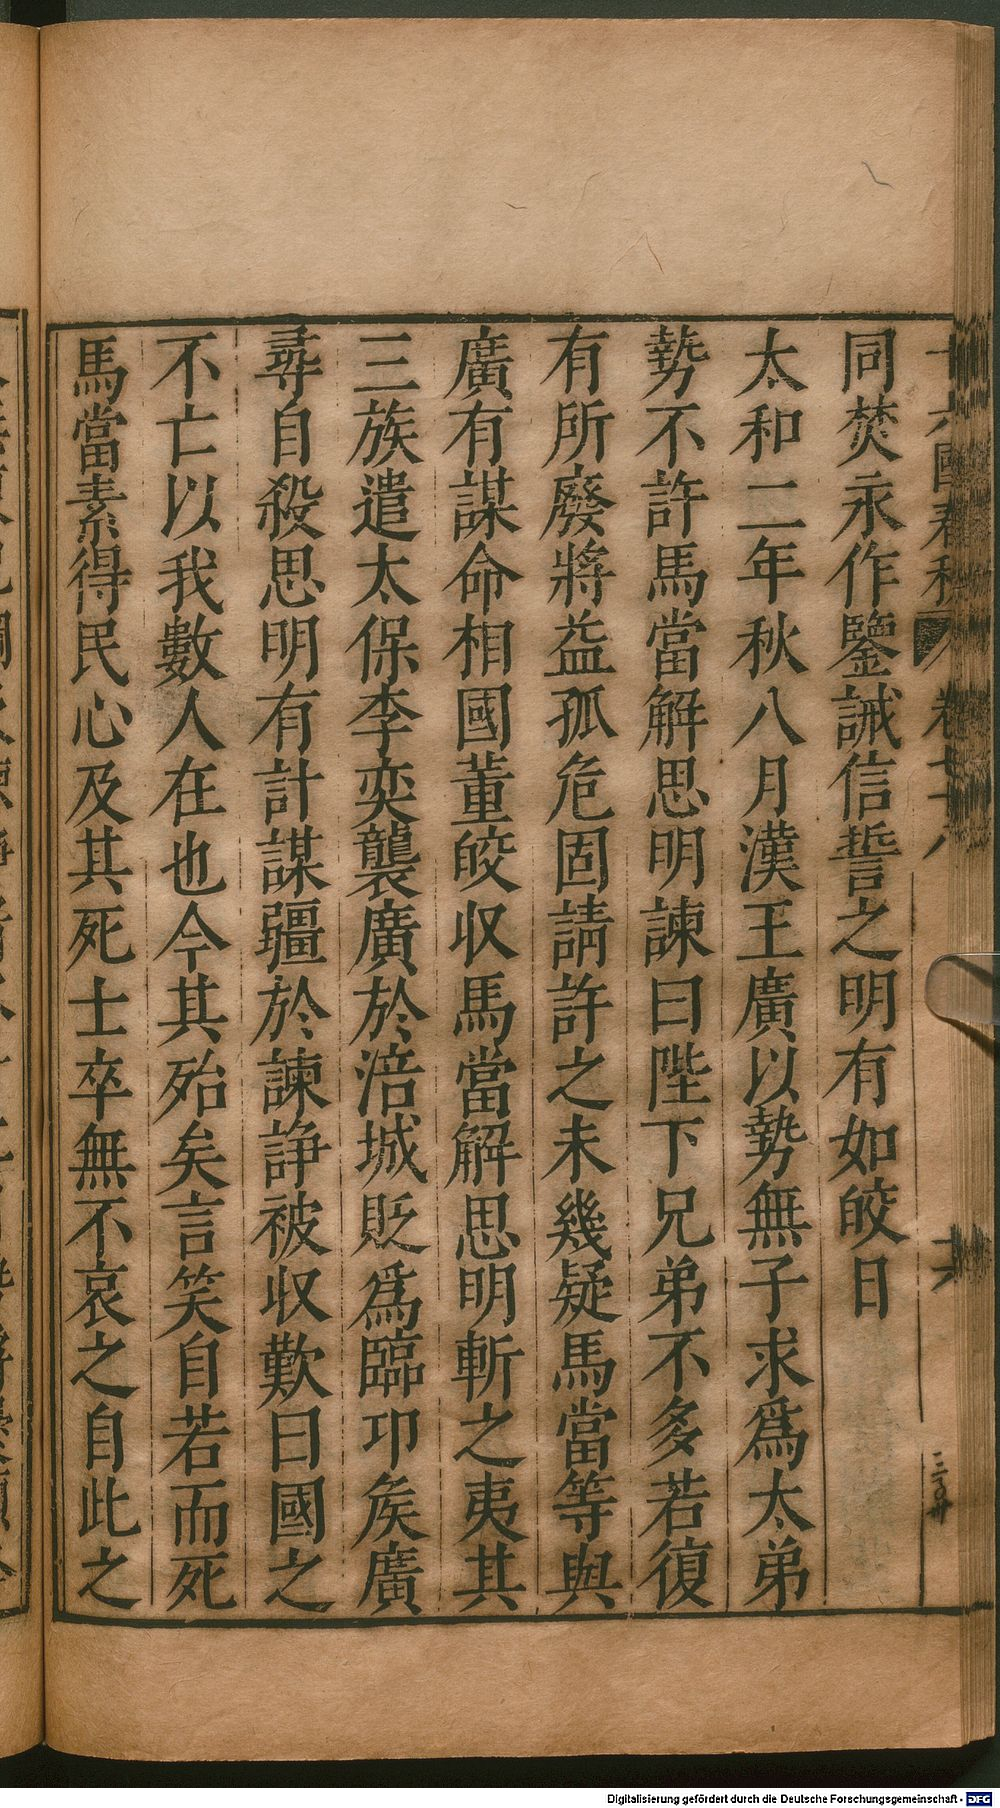 十六國春秋 卷七十八 十六
同焚永作鑒誡信誓之明有如皎日
太和二年秋八月漢王廣以勢無子求爲太弟
勢不許馬當解思明諫曰陛下兄弟不多若復
有所廢將益孤危固請許之未幾疑馬當等與
廣有謀命相國董皎収馬當解思明斬之夷其
三族遣太保李奕襲廣於涪城貶爲臨卭矦廣
尋自殺思明有計謀疆於諫諍被収歎曰國之
不亡以我數人在也今其殆矣言笑自若而死
馬當素得民心及其死士卒無不哀之自此之
Digitalisierung gefördert durch die Deutsche Forschungsgemeinschaft - DFG